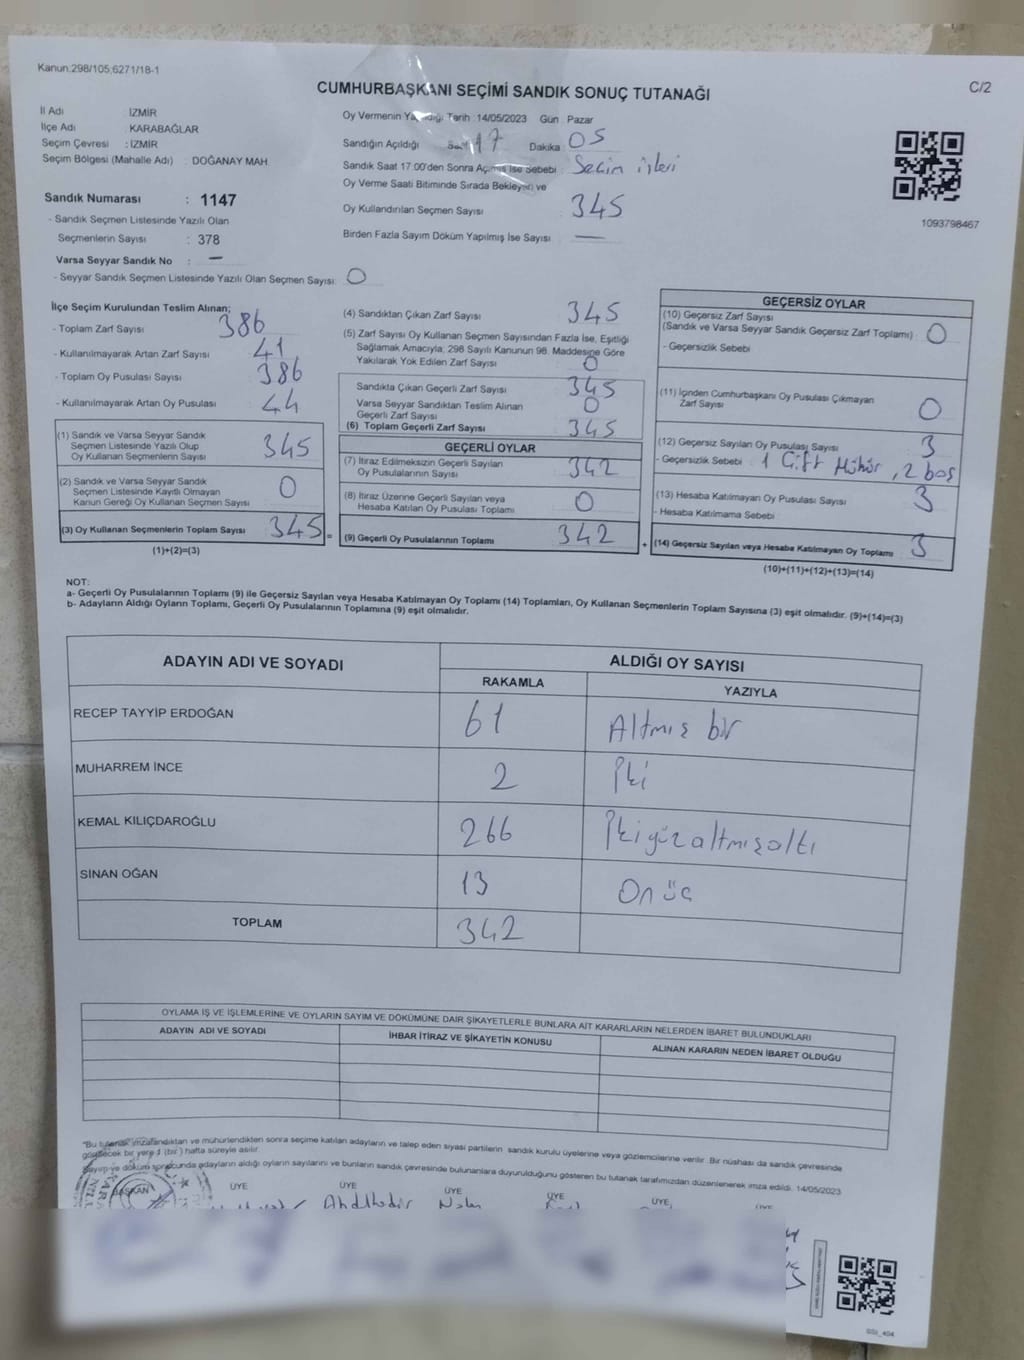 Kanun:298/105;6271/18-1
C/2
CUMHURBAŞKANI SEÇİMİ SANDIK SONUÇ TUTANAĞI
İl Adı İZMİR
İlçe Adı KARABAĞLAR
Seçim Çevresi : İZMİR
Seçim Bölgesi (Mahalle Adı) : DOĞANAY MAH.
Sandık Numarası : 1147
- Sandık Seçmen Listesinde Yazılı Olan
Seçmenlerin Sayısı : 378
Varsa Seyyar Sandık No : —
- Seyyar Sandık Seçmen Listesinde Yazılı Olan Seçmen Sayısı: 0
Oy Vermenin Tarih :14/05/2023 Gün : Pazar
Sandığın Açıldığı Saat 17 Dakika 05
Sandık Saat 17.00'den Sonra Açılmış İse Sebebi : Seçim işleri
Oy Verme Saati Bitiminde Sırada Bekleyen ve
Oy Kullandırılan Seçmen Sayısı 345
Birden Fazla Sayım Döküm Yapılmış İse Sayısı —
1093798467
İlçe Seçim Kurulundan Teslim Alınan;
- Toplam Zarf Sayısı 386
- Kullanılmayarak Artan Zarf Sayısı 41
- Toplam Oy Pusulası Sayısı 386
- Kullanılmayarak Artan Oy Pusulası 44
(1) Sandık ve Varsa Seyyar Sandık
Seçmen Listesinde Yazılı Olup
Oy Kullanan Seçmenlerin Sayısı 345
(2) Sandık ve Varsa Seyyar Sandık
Seçmen Listesinde Kayıtlı Olmayan
Kanun Gereği Oy Kullanan Seçmen Sayısı 0
(3) Oy Kullanan Seçmenlerin Toplam Sayısı 345 =
(1)+(2)=(3)
(4) Sandıktan Çıkan Zarf Sayısı 345
(5) Zarf Sayısı Oy Kullanan Seçmen Sayısından Fazla İse, Eşitliği
Sağlamak Amacıyla; 298 Sayılı Kanunun 98. Maddesine Göre
Yakılarak Yok Edilen Zarf Sayısı 0
Sandıkta Çıkan Geçerli Zarf Sayısı 345
Varsa Seyyar Sandıktan Teslim Alınan
Geçerli Zarf Sayısı 0
(6) Toplam Geçerli Zarf Sayısı 345
GEÇERLİ OYLAR
(7) İtiraz Edilmeksizin Geçerli Sayılan
Oy Pusulalarının Sayısı 342
(8) İtiraz Üzerine Geçerli Sayılan veya
Hesaba Katılan Oy Pusulası Toplamı 0
(9) Geçerli Oy Pusulalarının Toplamı 342 +
GEÇERSİZ OYLAR
(10) Geçersiz Zarf Sayısı
(Sandık ve Varsa Seyyar Sandık Geçersiz Zarf Toplamı) : 0
- Geçersizlik Sebebi
(11) İçinden Cumhurbaşkanı Oy Pusulası Çıkmayan
Zarf Sayısı 0
(12) Geçersiz Sayılan Oy Pusulası Sayısı 3
- Geçersizlik Sebebi : 1 Çift Mühür, 2 boş
(13) Hesaba Katılmayan Oy Pusulası Sayısı 3
- Hesaba Katılmama Sebebi
(14) Geçersiz Sayılan veya Hesaba Katılmayan Oy Toplamı 3
(10)+(11)+(12)+(13)=(14)
NOT:
a- Geçerli Oy Pusulalarının Toplamı (9) ile Geçersiz Sayılan veya Hesaba Katılmayan Oy Toplamı (14) Toplamları, Oy Kullanan Seçmenlerin Toplam Sayısına (3) eşit olmalıdır. (9)+(14)=(3)
b- Adayların Aldığı Oyların Toplamı, Geçerli Oy Pusulalarının Toplamına (9) eşit olmalıdır.
ADAYIN ADI VE SOYADI
ALDIĞI OY SAYISI
RAKAMLA YAZIYLA
RECEP TAYYİP ERDOĞAN 61 Altmış bir
MUHARREM İNCE 2 İki
KEMAL KILIÇDAROĞLU 266 İkiyüzaltmışaltı
SİNAN OĞAN 13 On üç
TOPLAM 342
OYLAMA İŞ VE İŞLEMLERİNE VE OYLARIN SAYIM VE DÖKÜMÜNE DAİR ŞİKAYETLERLE BUNLARA AİT KARARLARIN NELERDEN İBARET BULUNDUKLARI
ADAYIN ADI VE SOYADI İHBAR İTİRAZ VE ŞİKAYETİN KONUSU ALINAN KARARIN NEDEN İBARET OLDUĞU
*Bu tutanak imzalandıktan ve mühürlendikten sonra seçime katılan adayların ve talep eden siyasi partilerin sandık kurulu üyelerine veya gözlemcilerine verilir. Bir nüshası da sandık çevresinde
görülecek bir yere 1 (bir ) hafta süreyle asılır.
Sayım ve döküm sonucunda adayların aldığı oyların sayılarını ve bunların sandık çevresinde bulunanlara duyurulduğunu gösteren bu tutanak tarafımızdan düzenlenerek imza edildi. 14/05/2023
BAŞKAN ÜYE ÜYE ÜYE ÜYE ÜYE ÜYE
SSI_404